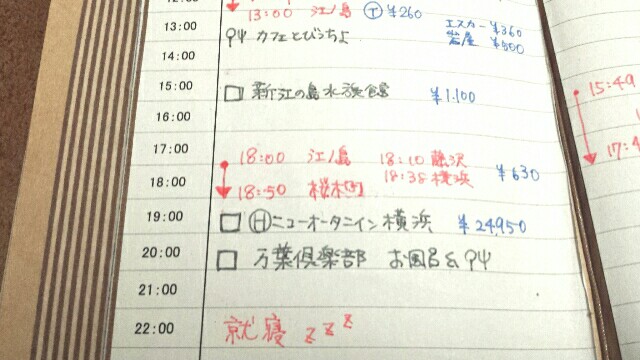 13:00 江ノ島 Ⓣ ¥260
13:00
エスカー ¥360
岩屋 ¥500
カフェとびうちょ
14:00
15:00
新江の島水族館 ¥1.100
16:00
17:00
18:00 江ノ島 18:10 藤沢
18:38 横浜 ¥630
18:00
18:50 桜木町
19:00
Ⓗニューオータニイン横浜 ¥24,950
20:00
万葉倶楽部 お風呂&
21:00
22:00
就寝 zzz
15:49
17:4